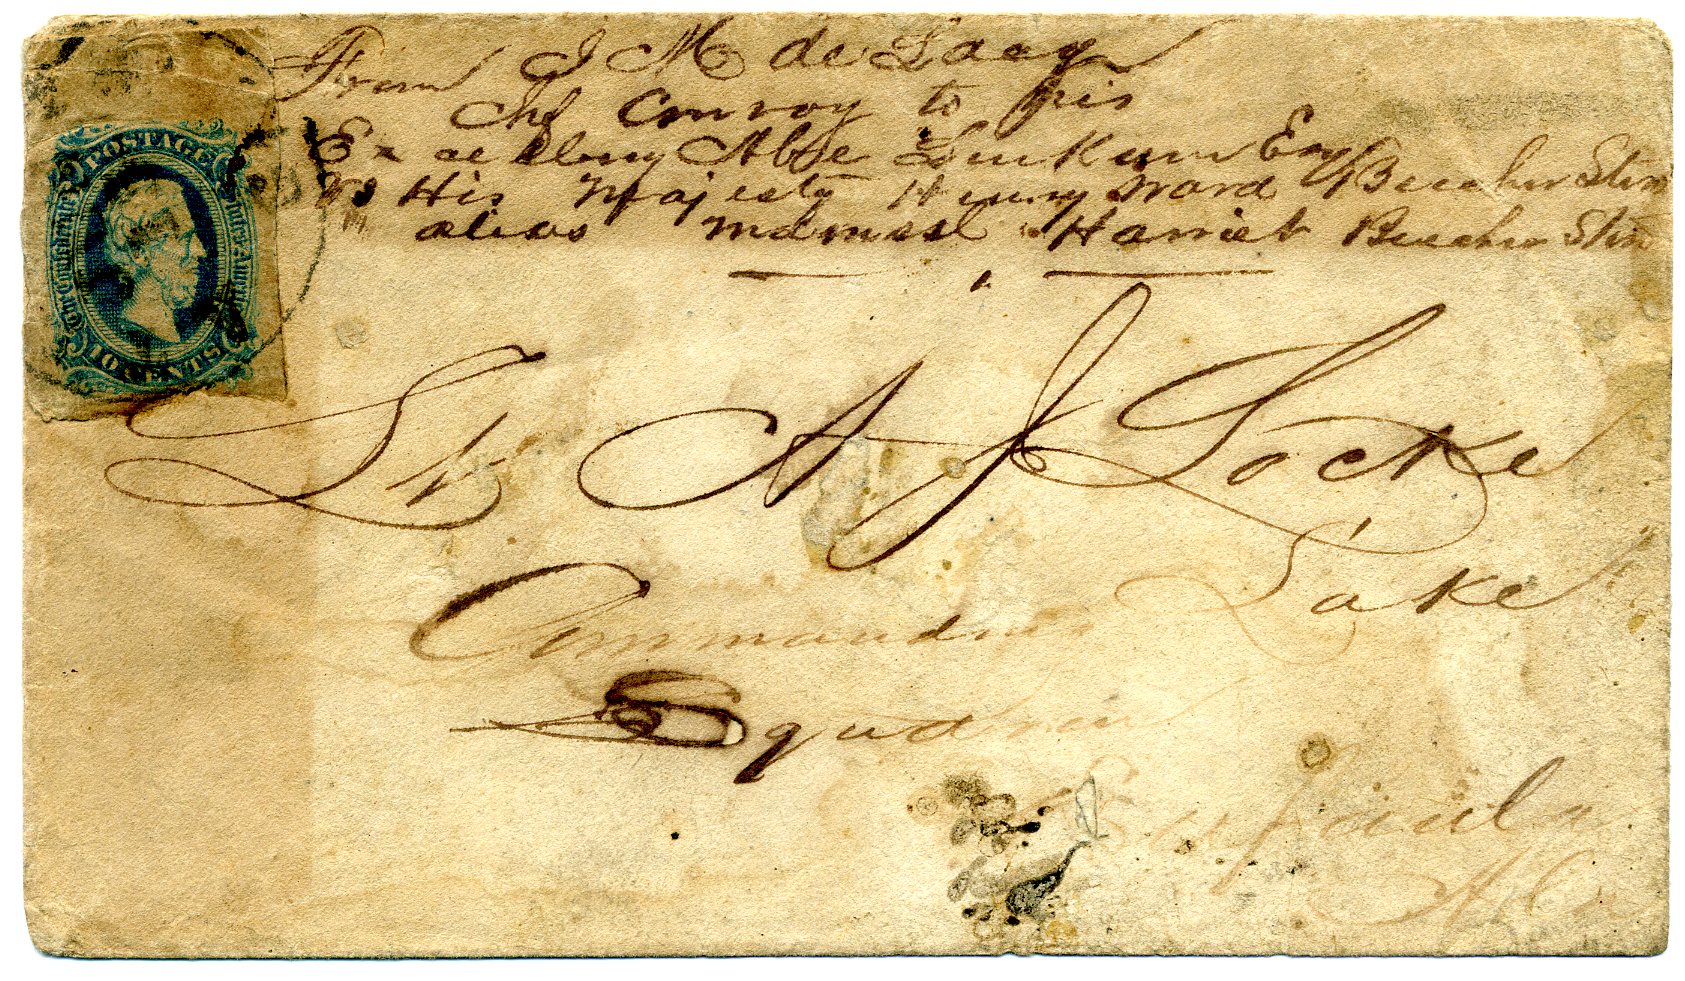 POSTAGE
The Confederate States of America
10 CENTS
From J M de Lacy
Chf Convoy to his
Ex ce lleny Abe Linkum Esq
vs His Majesty Henry Ward Beecher Stow
alias mdmsl Harriet Beecher Stow
Lt A J Locke
Lake
Commanding
Squadron
Eufaula